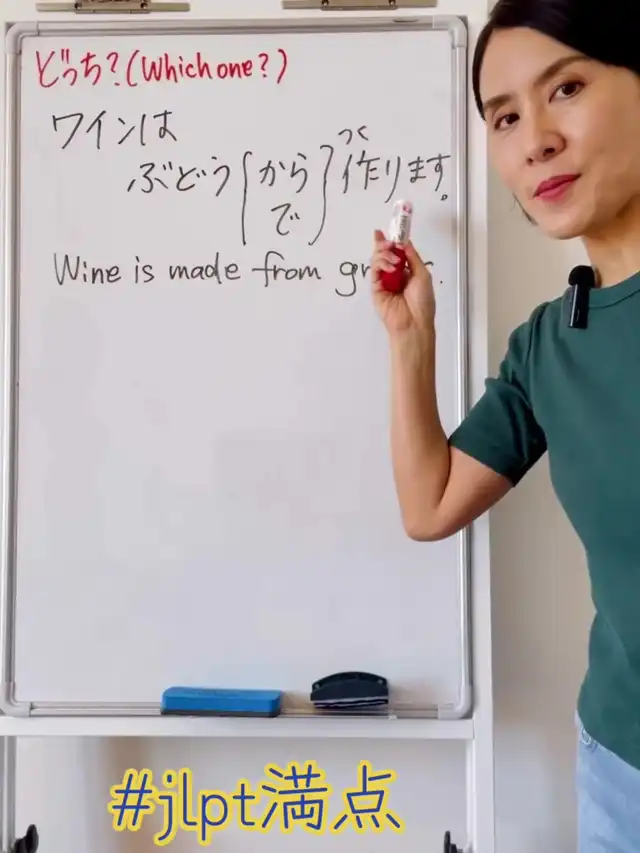 どっち？(Which one？)
ワインは
ぶどう{から/で}作ります。
つく
Wine is made from
#jlpt満点